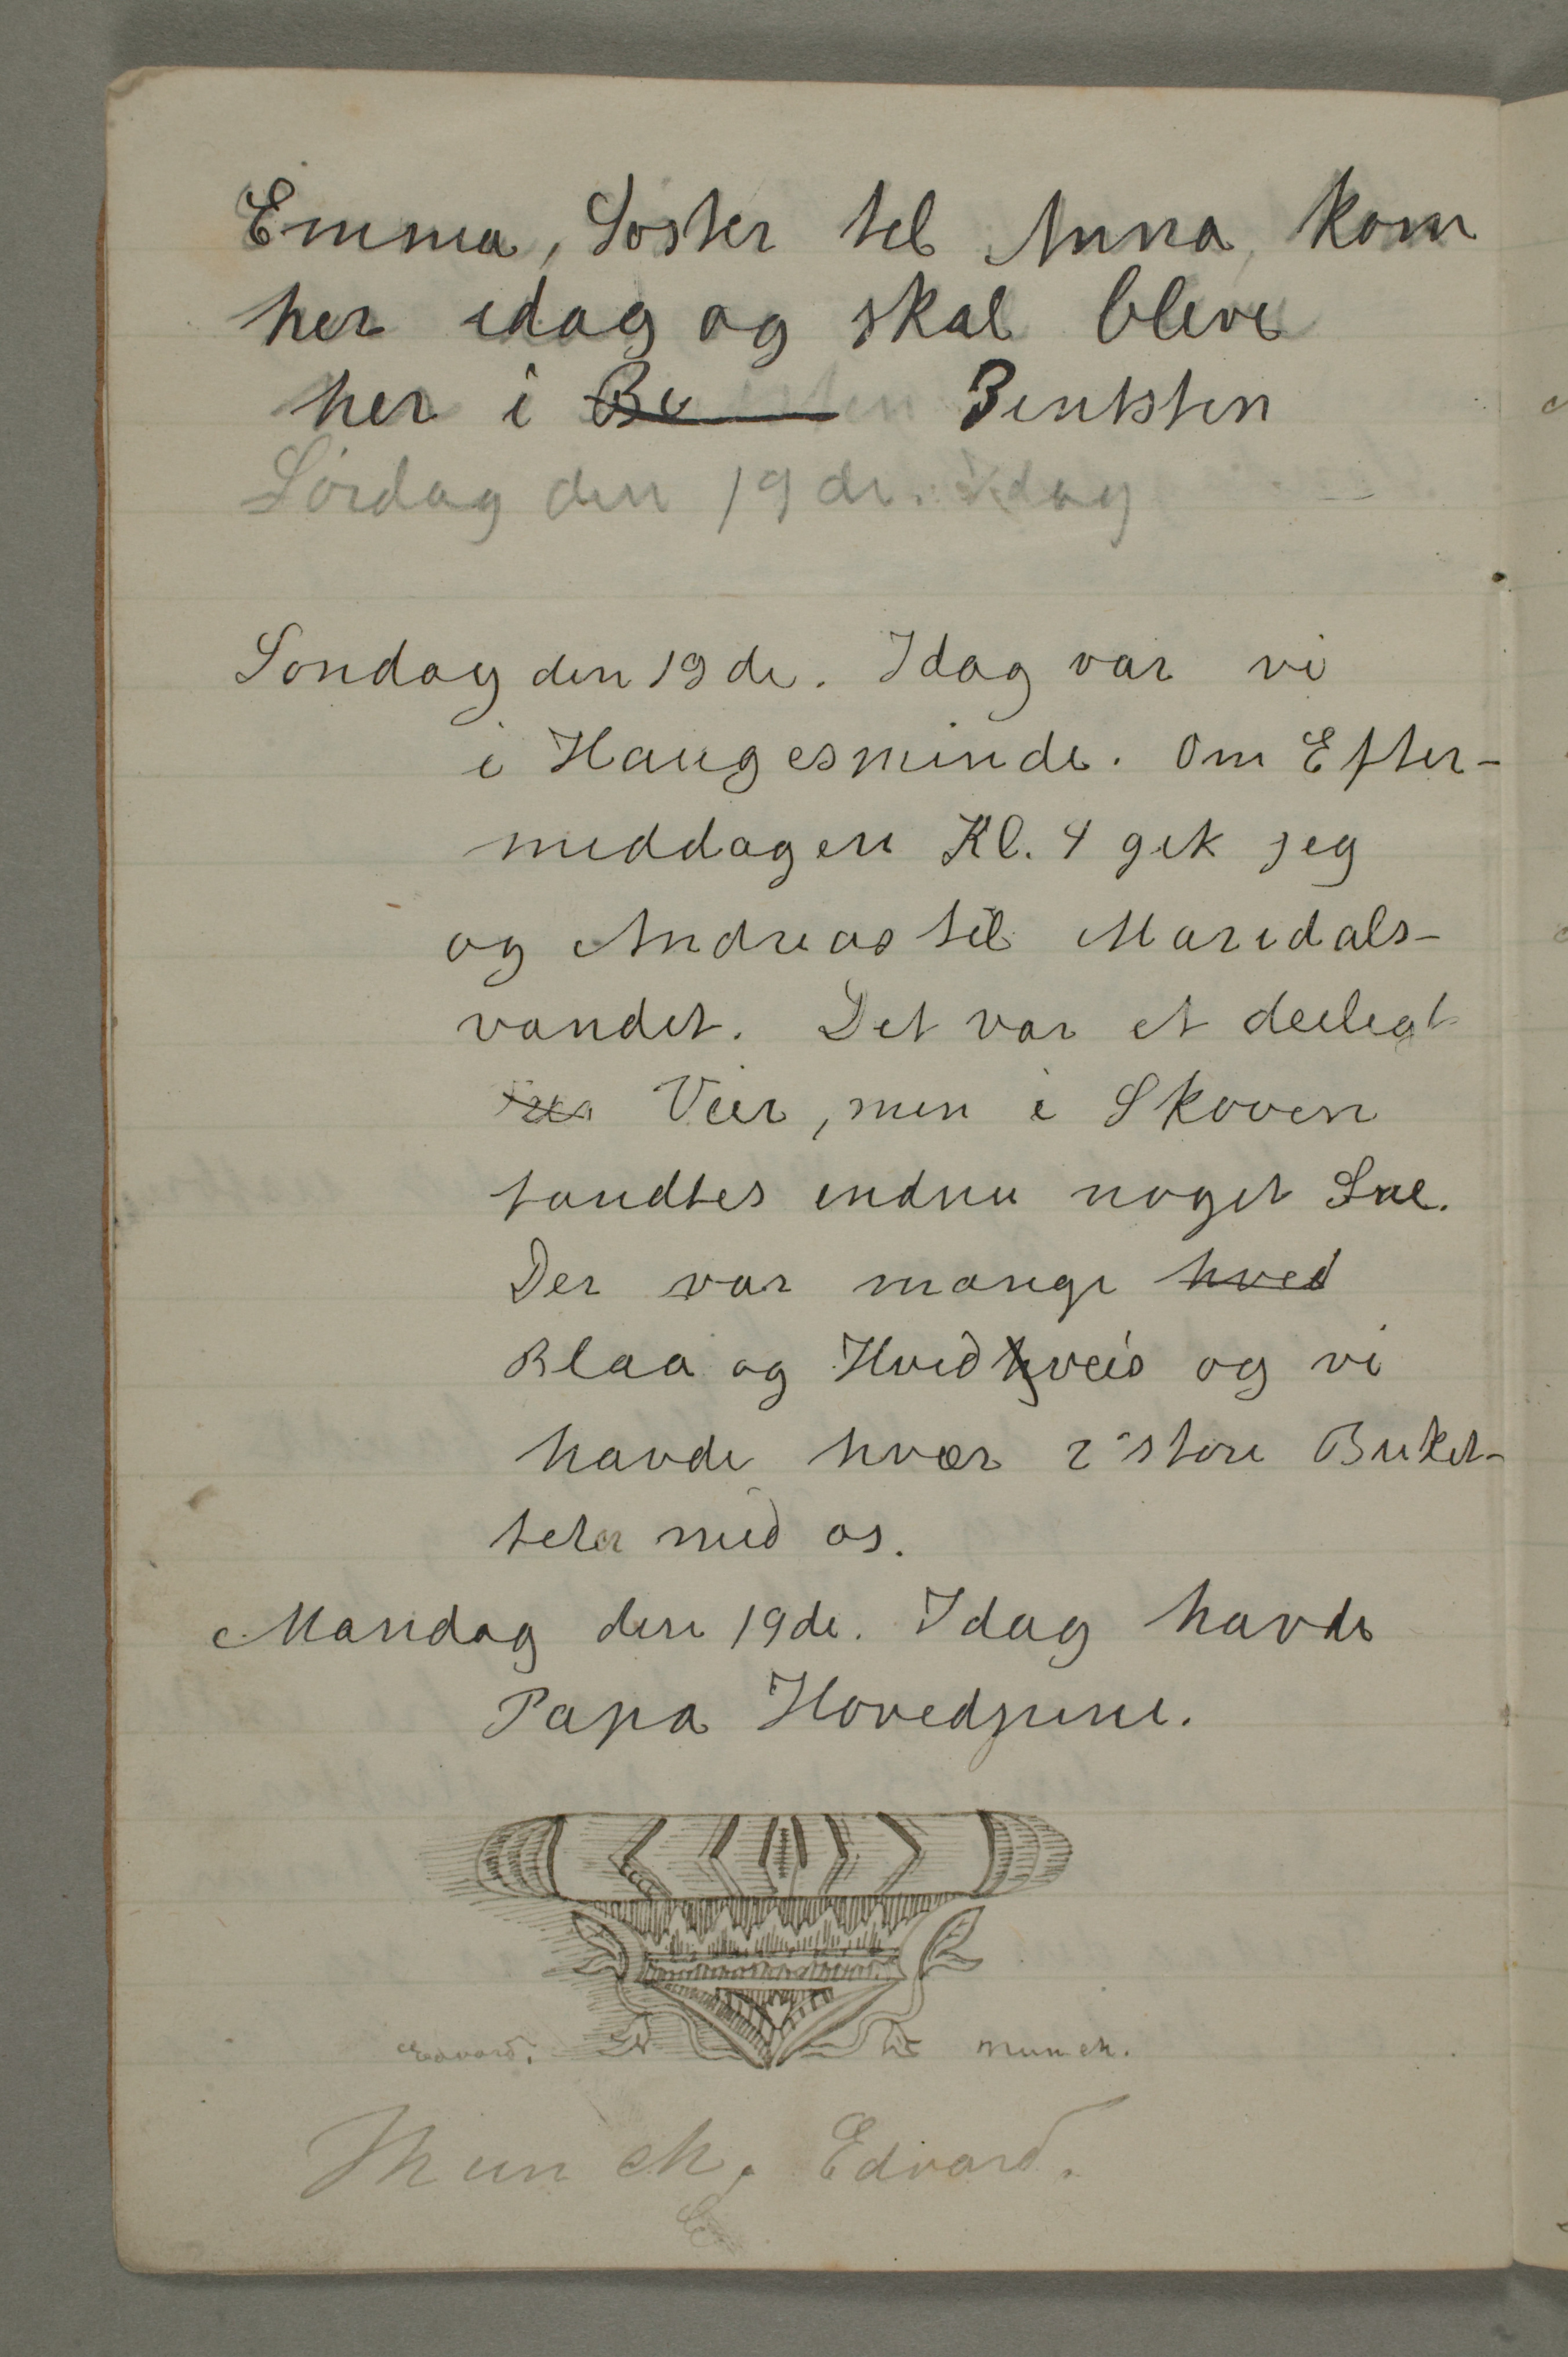 Emma, Søster til Anna, kom
her idag og skal blive
her i Be Bentsten
Lördag den 19de. Idag
Söndag den 19de. Idag var vi
i Haugesminde. Om Efter-
middagen Kl. 4 gik jeg
og Andreas til Maridals-
vandet. Det var et deiligt
Veir, men i Skoven
fandtes endnu noget Sne.
Der var mange hved
Blaa og Hvidhveis og vi
havde hver 2 store Buket-
ter med os.
Mandag den 19de. Idag havde
Papa Hovedpine.
Edvard. Munch.
Munch. Edvard.